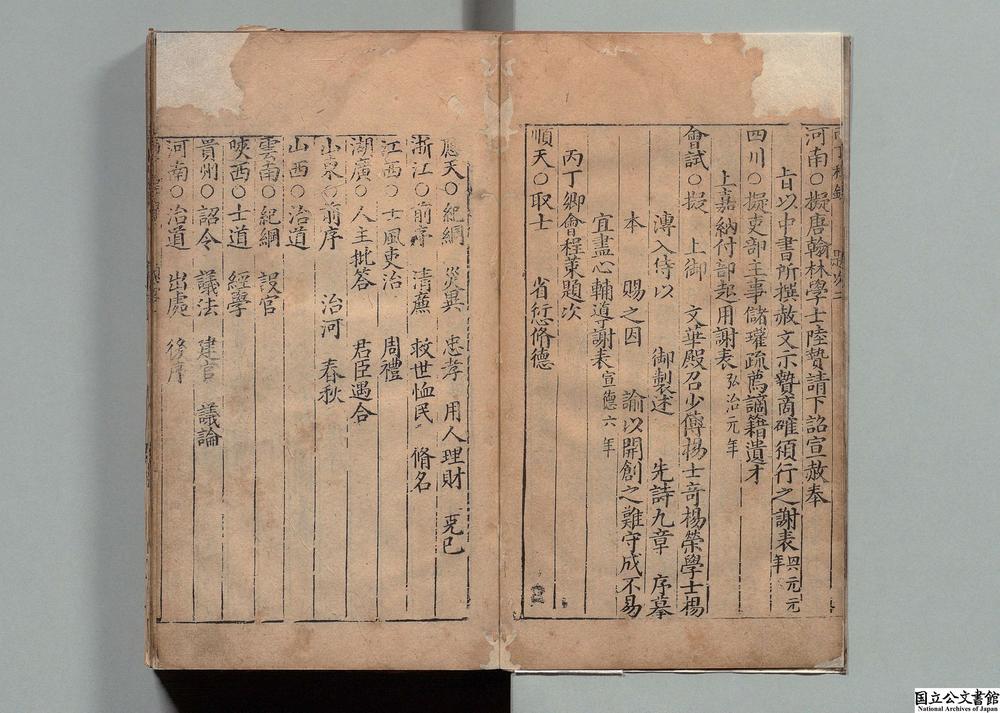 河南○擬唐翰林學士陸贄請下詔宣赦奉
上旨以中書所撰赦文示贄商確須行之謝表興元元年
四川○擬吏部主事儲瓘疏薦謫籍遺才
上嘉納付部起用謝表弘治元年
會試○擬 上御 文華殿召少傅楊士奇楊榮學士楊
溥入侍以 御製述 先詩九章 序摹
本 賜之因 諭以開創之難守成不易
宜盡心輔導謝表宣德六年
丙丁鄉會程策題次
順天○取士 省愆脩德
應天○紀綱 災異 忠孝 用人理財 克已
浙江○前序 清廉 救世恤民 脩名
江西○士風吏治 周禮
湖廣○人主批答 君臣遇合
山東○前序 治河 春秋
山西○治道
雲南○紀綱 設官
陝西○士道 經學
貴州○詔令 議法 建官 議論
河南○治道 出處 後序
国立公文書館
National Archives of Japan